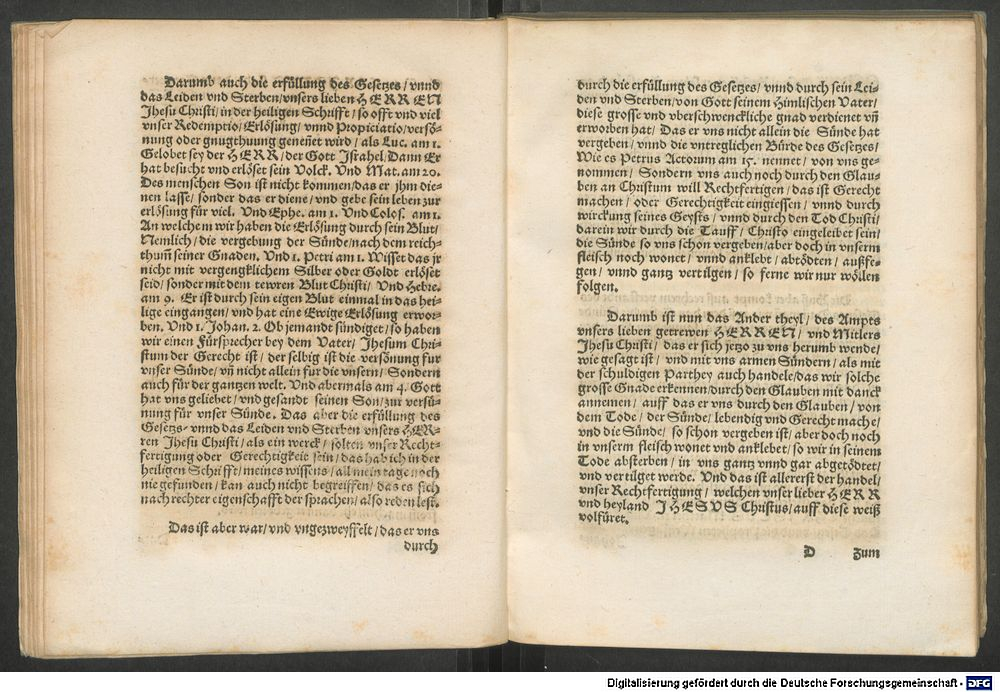 Darumb auch die erfüllung des Gesetzes / vnnd
das Leiden vnd Sterben / vnsers lieben HERREN
Jhesu Christi / in der heiligen Schrifft / so offt vnd viel
vnser Redemptio / Erlösung / vnnd Propiciatio / versö-
nung oder gnugthuung geneñet wird / als Luc. am 1.
Gelobet sey der HERR / der Gott Israhel / Dann Er
hat besucht vnd erlöset sein Volck. Vnd Mat. am 20.
Des menschen Son ist nicht kommen / das er jhm die-
nen lasse / sonder das er diene / vnd gebe sein leben zur
erlösung für viel. Vnd Ephe. am 1. Vnd Colos. am 1.
An welchem wir haben die Erlösung durch sein Blut /
Nemlich / die vergebung der Sünde / nach dem reich-
thum̃ seiner Gnaden. Vnd 1. Petri am 1. Wisset das jr
nicht mit vergengklichem Silber oder Goldt erlöset
seid / sonder mit dem tewren Blut Christi / Vnd Hebre.
am 9. Er ist durch sein eigen Blut einmal in das hei-
lige eingangen / vnd hat eine Ewige Erlösung erwor-
ben. Vnd 1. Johan. 2. Ob jemandt sündiget / so haben
wir einen Fürsprecher bey dem Vater / Jhesum Chri-
stum der Gerecht ist / der selbig ist die versönung fur
vnser Sünde / vñ nicht allein fur die vnsern / Sondern
auch für der gantzen welt. Vnd abermals am 4. Gott
hat vns geliebet / vnd gesandt seinen Son / zur versü-
nung für vnser Sünde. Das aber die erfüllung des
Gesetzs / vnnd das Leiden vnd Sterben vnsers HER-
ren Jhesu Christi / als ein werck / solten vnser Recht-
fertigung oder Gerechtigkeit sein / das hab ich in der
heiligen Schrifft / meines wissens / all mein tage noch
nie gefunden / kan auch nicht begreiffen / das es sich
nach rechter eigenschafft der sprachen / also reden lest.
Das ist aber war / vnd vngezweyffelt / das er vns
durch
durch die erfüllung des Gesetzes / vnnd durch sein Lei-
den vnd Sterben / von Gott seinem Himlischen Vater /
diese grosse vnd vberschwenckliche gnad verdienet vñ
erworben hat / Das er vns nicht allein die Sünde hat
vergeben / vnnd die vntreglichen Bürde des Gesetzes /
Wie es Petrus Actorum am 15. nennet / von vns ge-
nommen / Sondern vns auch noch durch den Glau-
ben an Christum will Rechtfertigen / das ist Gerecht
machen / oder Gerechtigkeit eingiessen / vnnd durch
wirckung seines Geysts / vnnd durch den Tod Christi /
darein wir durch die Tauff / Christo eingeleibet sein /
die Sünde so vns schon vergeben / aber doch in vnserm
fleisch noch wonet / vnnd anklebt / abtödten / außfe-
gen / vnnd gantz vertilgen / so ferne wir nur wöllen
folgen.
Darumb ist nun das Ander theyl / des Ampts
vnsers lieben getrewen HERREN / vnd Mitlers
Jhesu Christi / das er sich jetzo zu vns herumb wende /
wie gesagt ist / vnd mit vns armen Sündern / als mit
der schuldigen Parthey auch handele / das wir solche
grosse Gnade erkennen / durch den Glauben mit danck
annemen / auff das er vns durch den Glauben / von
dem Tode / der Sünde / lebendig vnd Gerecht mache /
vnd die Sünde / so schon vergeben ist / aber doch noch
in vnserm fleisch wonet vnd anklebet / so wir in seinem
Tode absterben / in vns gantz vnnd gar abgetödtet /
vnd vertilget werde. Vnd das ist allererst der handel /
vnser Rechtfertigung / welchen vnser lieber HERR
vnd heyland JHESVS Christus / auff diese weiß
volfüret.
D zum
Digitalisierung gefördert durch die Deutsche Forschungsgemeinschaft - DFG